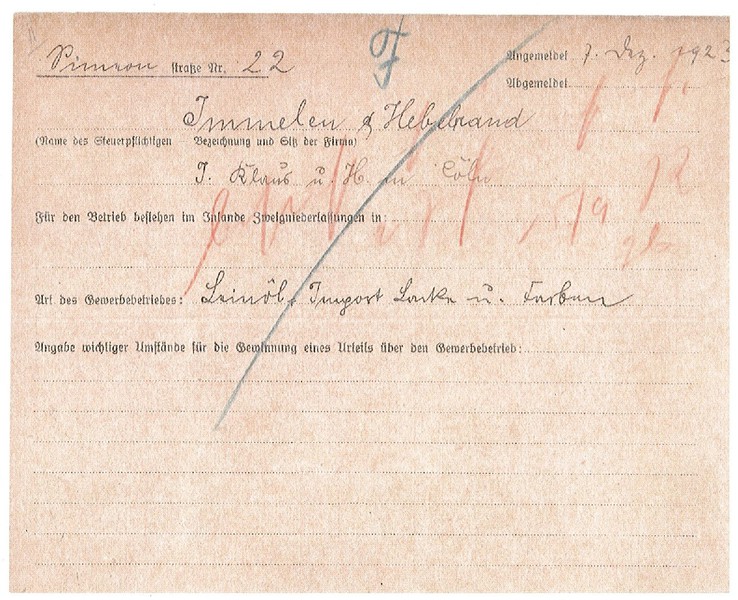 F
Simeon straße Nr. 22
Angemeldet 7. Dez. 1923
Abgemeldet
Immelen & Hebebrand
(Name des Steuerpflichtigen Bezeichnung und Sitz der Firma)
J. Klaus u. H. in Cöln
Für den Betrieb bestehen im Inlande Zweigniederlassungen in:
Art des Gewerbebetriebes: Leinöl, Import Lacke u. Farben
Angabe wichtiger Umstände für die Gewinnung eines Urteils über den Gewerbebetrieb: